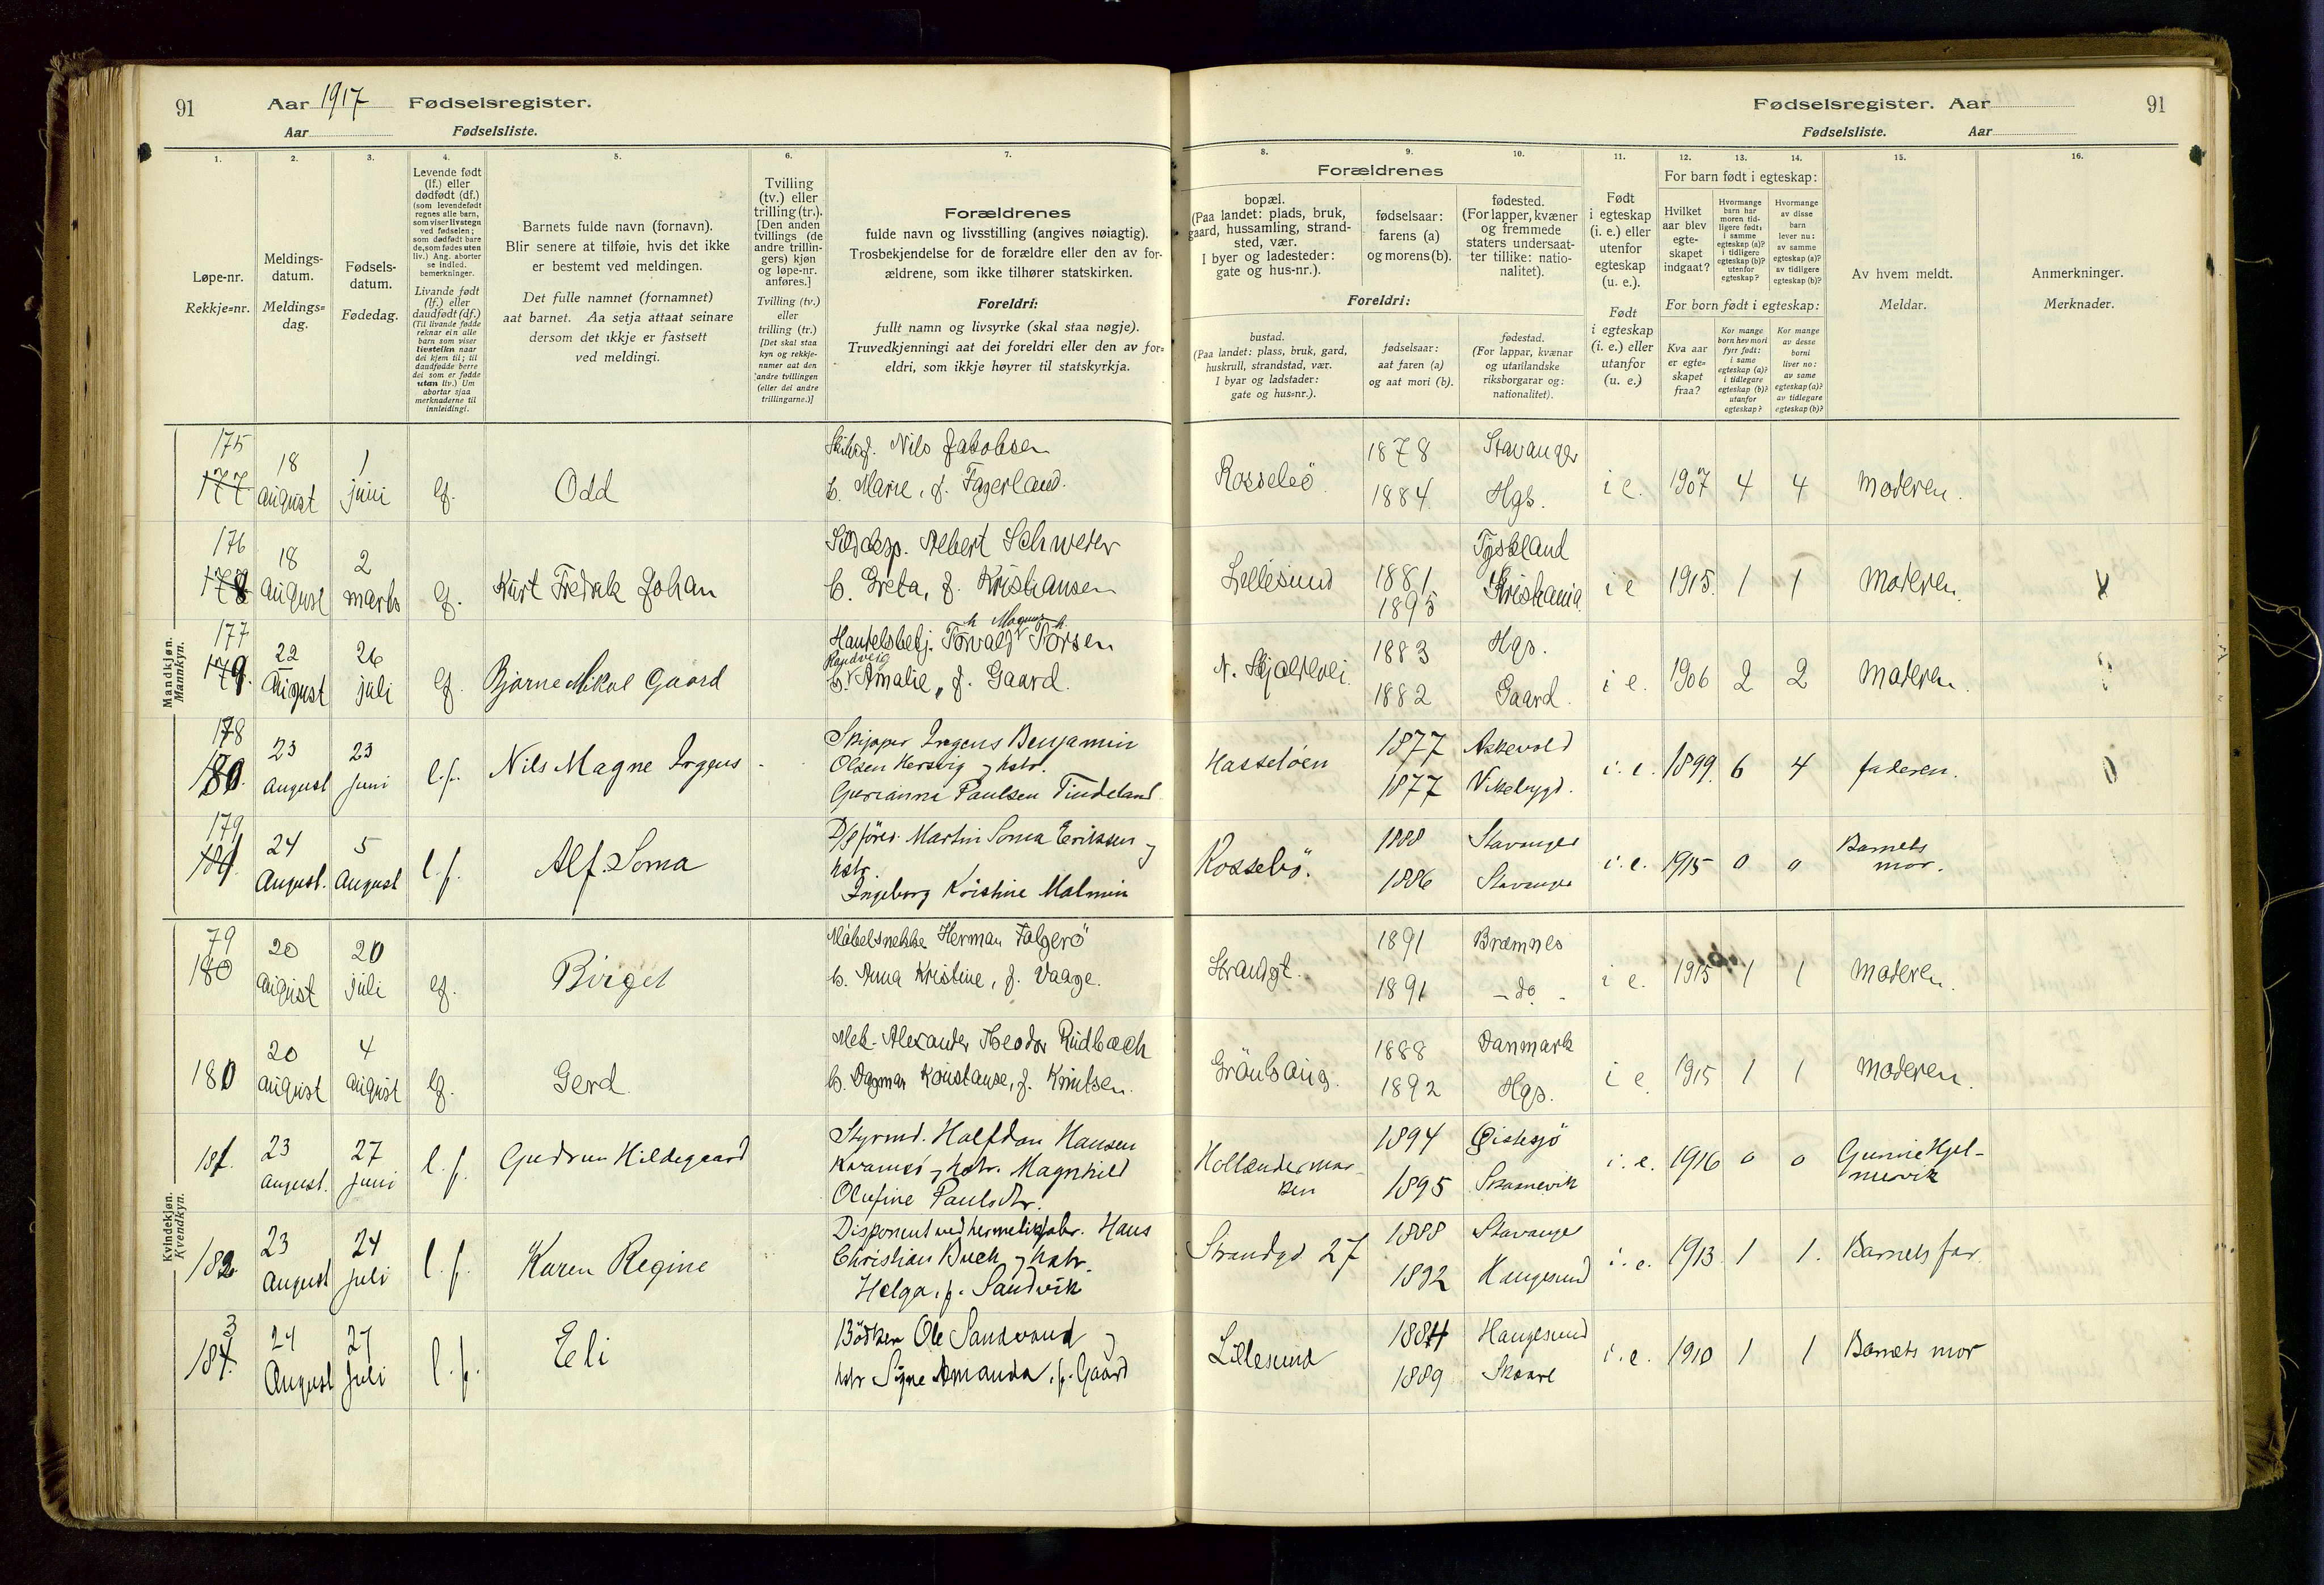 91 Aar 1917 Fødselsregister.
Aar Fødselsliste.
Fødselsregister. Aar 91
Fødselsliste. Aar
1. 2. 3. 4. 5. 6. 7. 8. 9. 10. 11. 12. 13. 14. 15. 16.
Løpe-nr.
Rekkje-nr.
Meldings-
datum.
Meldings-
dag.
Fødsels-
datum.
Fødedag.
Levende født
(lf.) eller
dødfødt (df.)
(som levendefødt
regnes alle barn,
som viser livstegn
ved fødselen;
som dødfødt bare
de, som fødes uten
liv.) Ang. aborter
se indled.
bemerkninger.
Livande født
(lf.) eller
daudfødt (df.)
(Til livande fødde
reknar ein alle
barn som viser
livsteikn naar
dei kjem til; til
daudfødde berre
dei som er fødde
utan liv.) Um
abortar sjaa
merknaderne til
innleidingi.
Barnets fulde navn (fornavn).
Blir senere at tilføie, hvis det ikke
er bestemt ved meldingen.
Det fulle namnet (fornamnet)
aat barnet. Aa setja attaat seinare
dersom det ikkje er fastsett
ved meldingi.
Tvilling
(tv.) eller
trilling (tr.).
[Den anden
tvillings (de
andre trillin-
gers) kjøn
og løpe-nr.
anføres.]
Tvilling (tv.)
eller
trilling (tr.)
[Det skal staa
kyn og rekkje-
numer aat den
andre tvillingen
(eller dei andre
trillingarne.)]
Forældrenes
fulde navn og livsstilling (angives nøiagtig).
Trosbekjendelse for de forældre eller den av for-
ældrene, som ikke tilhører statskirken.
Foreldri:
fullt namn og livsyrke (skal staa nøgje).
Truvedkjenningi aat dei foreldri eller den av for-
eldri, som ikkje høyrer til statskyrkja.
Forældrenes
bopæl.
(Paa landet: plads, bruk,
gaard, hussamling, strand-
sted, vær.
I byer og ladesteder:
gate og hus-nr.).
fødselsaar:
farens (a)
og morens (b).
fødested.
(For lapper, kvæner
og fremmede
staters undersaat-
ter tillike: natio-
nalitet).
Foreldri:
bustad.
(Paa landet: plass, bruk, gard,
huskrull, strandstad, vær.
I byar og ladstader:
gate og hus-nr.).
fødselsaar:
aat faren (a)
og aat mori (b).
fødestad.
(For lappar, kvænar
og utarilandske
riksborgarar og:
nationalitet).
Født
i egteskap
(i. e.) eller
utenfor
egteskap
(u. e.).
Født
i egteskap
(i. e.) eller
utanfor
(u. e.)
For barn født i egteskap:
Hvilket
aar blev
egte-
skapet
indgaat?
Hvormange
barn har
moren tid-
ligere født:
i samme
egteskap (a)?
i tidligere
egteskap (b)?
utenfor
egteskap?
Hvormange
av disse
barn
lever nu:
av samme
egteskap (a)?
av tidligere
egteskap (b)?
For born født i egteskap:
Kva aar
er egte-
skapet
fraa?
Kor mange
born hev mori
fyrr født:
i same
egteskap (a)?
i tidlegare
egteskap (b)?
utanfor
egteskap?
Kor mange
av desse
borni
liver no:
av same
egteskap (a)?
av tidlegare
egteskap (b)?
Av hvem meldt.
Meldar.
Anmerkninger.
Merknader.
Mandkjøn.
Mannkyn.
175
177 18 august 1 juni lf. Odd
Nils Jakobsen
h. Marie, f. Fagerland.
Rossebö 1878 Stavanger
1884 Hgs. i e. 1907 4 4 Moderen.
176
178 18 august 2 marts lf. Kurt Fredrik Johan
Albert Schweder
h. Greta, f. Kristiansen
Lillesund 1881 Tyskland
1895 Kristiania i e 1915. 1 1 Moderen.
177
179. 22 august 26 juli lf. Bjarne Mikal Gaard
h Magnus h.
Handelsbetj. Torvald Torsen
Randveig
h. Amalie, f. Gaard.
N. Skjoldvei. 1883 Hgs.
1882 Gaard. i e. 1906 2 2 Moderen.
178
180. 23 August 23 Juni l.f. Nils Magne Irgens
Skipper Irgens Benjamin
Olsen Hersvig og hstr.
Gurianna Paulsen Tindeland
Hasseløen 1877 Askevold
1877 Vikebygd. i. e. 1899. 6 4 faderen.
179
181. 24 August. 5 August l.f. Alf Soma
Martin Soma Eriksen og
hstr.
Ingeborg Kristine Malmin
Rossebö. 1888 Stavanger
1886 Stavanger i. e. 1915 0 0 Barnets
mor.
Kvindekjøn.
Kvendkyn.
79
180 20 august 20 juli lf. Birget
Møbelsnekke Herman Folgerö
h. Anna Kristine, f. Vaage.
Strandgt. 1891 Bræmnes
1891 - do - i e. 1915 1 1 Moderen.
180 20 august 4 august lf. Gerd
Mek. Alexander Theodor Rudbæch
h. Dagmar Konstanse, f. Knutsen.
1888 Danmark
1892 Hgs. i e 1915 1 1 Moderen.
181. 23 August. 27 Juni l.f. Gudrun Hildegaard
Styrmd. Halfdan Hansen
og hstr. Magnhild
Olufine Paulsdtr.
Hollendermar-
ken 1894 Øistesjö
1895 Skaanevik i. e. 1916 0 0
182 23 August 24 Juli l.f. Karen Regine
Disponent ved hermetikfabr. Hans
Christian Buch og hstr.
Helga, f. Sandvik
Strandgd 27 1888 Stavanger
1892 Haugesund i. e. 1913 1 1. Barnets far.
3
184. 24 August 27 Juli l.f. Eli
Bödker Ole Sandvand og
hstr Signe Amanda, f. Gaard
Lillesund 1884 Haugesund
1889 Skaare i. e. 1910 1 1 Barnets mor